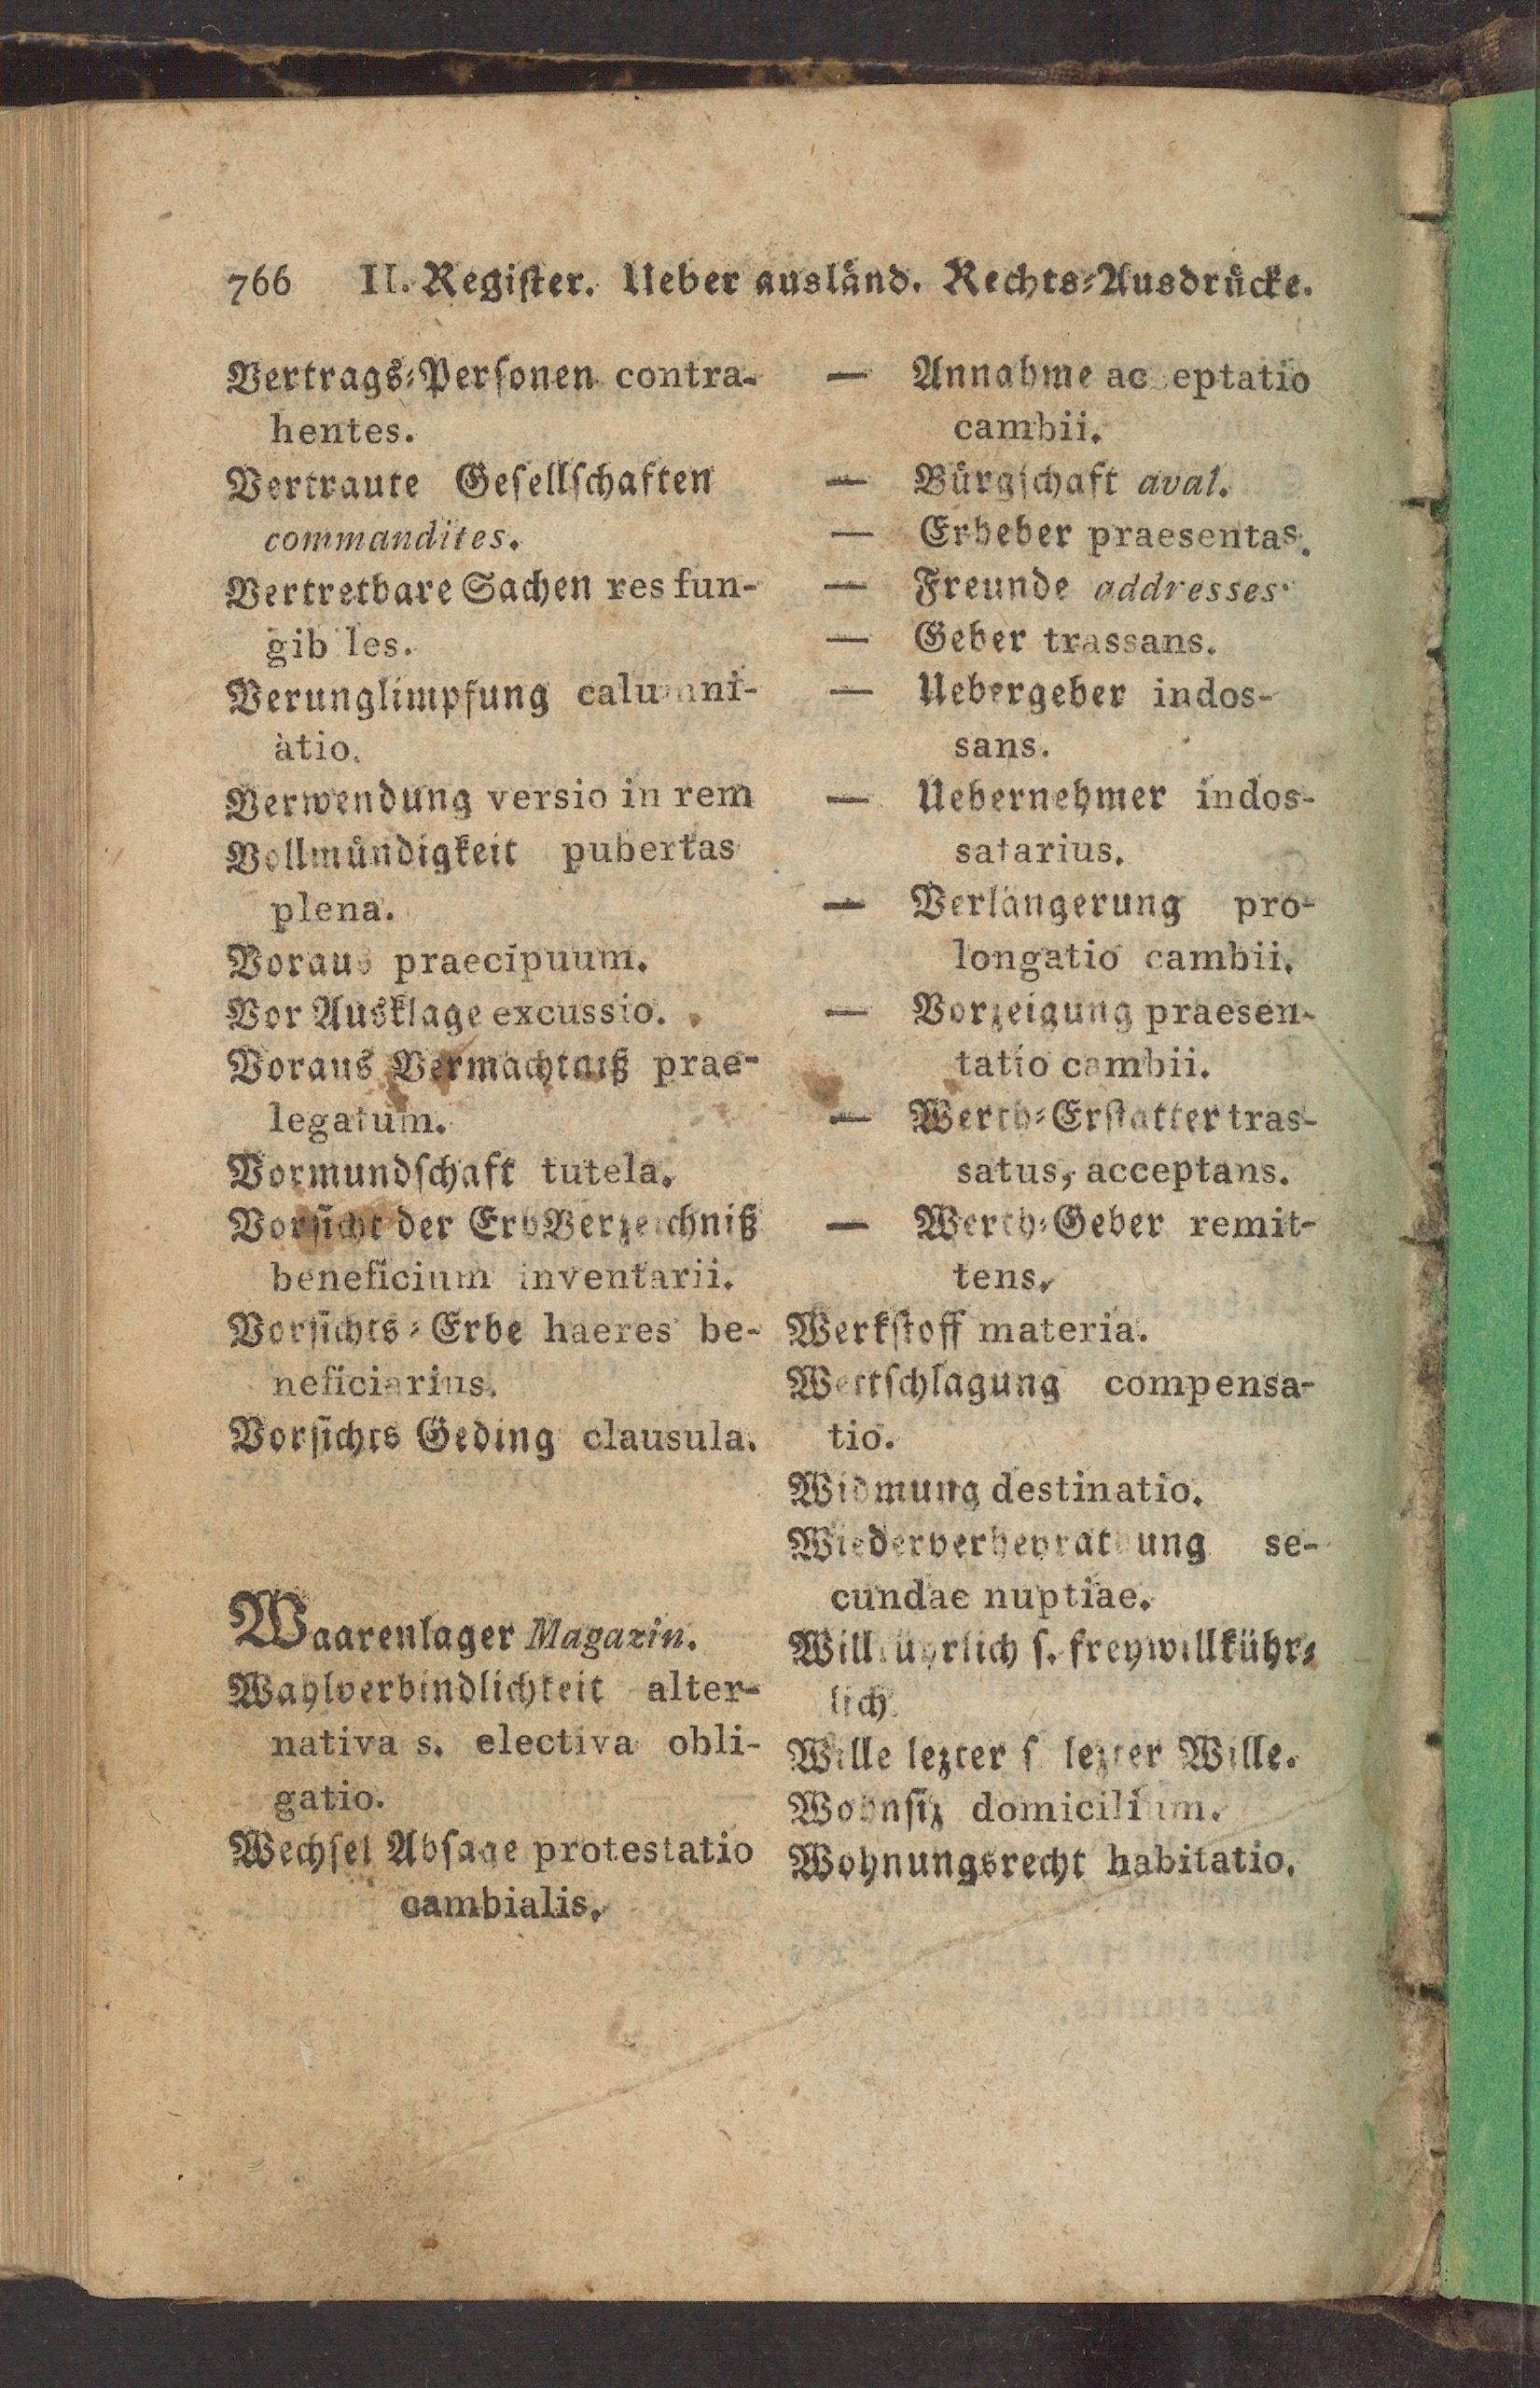 766 II. Register. Ueber ausländ. Rechts-Ausdrücke.
Vertrags-Personen contra-
hentes.
Vertraute Gesellschaften
commandites.
Vertretbare Sachen res fun-
gibiles.
Verunglimpfung calumni-
atio.
Verwendung versio in rem
Vollmündigkeit pubertas
plena.
Voraus praecipuum.
Vor Ausklage excussio.
Voraus Vermachtniß prae-
legatum.
Vormundschaft tutela.
Vorsicht der ErbVerzeichniß
beneficium inventarii.
Vorsichts-Erbe haeres be-
neficiarius.
Vorsichts Geding clausula.
Waarenlager Magazin.
Wahlverbindlichkeit alter-
nativa s. electiva obli-
gatio.
Wechsel Absage protestatio
cambialis.
— Annahme acceptatio
cambii.
— Bürgschaft aval.
— Erheber praesentas.
— Freunde addresses.
— Geber trassans.
— Uebergeber indos-
sans.
— Uebernehmer indos-
satarius.
— Verlängerung pro-
longatio cambii.
— Vorzeigung praesen-
tatio cambii.
— Werth-Erstatter tras-
satus, acceptans.
— Werth-Geber remit-
tens.
Werkstoff materia.
Wettschlagung compensa-
tio.
Widmung destinatio.
Wiederverheyrathung se-
cundae nuptiae.
Willkührlich s. freywillkühr-
lich.
Wille lezter s lezter Wille.
Wohnsiz domicilium.
Wohnungsrecht habitatio.